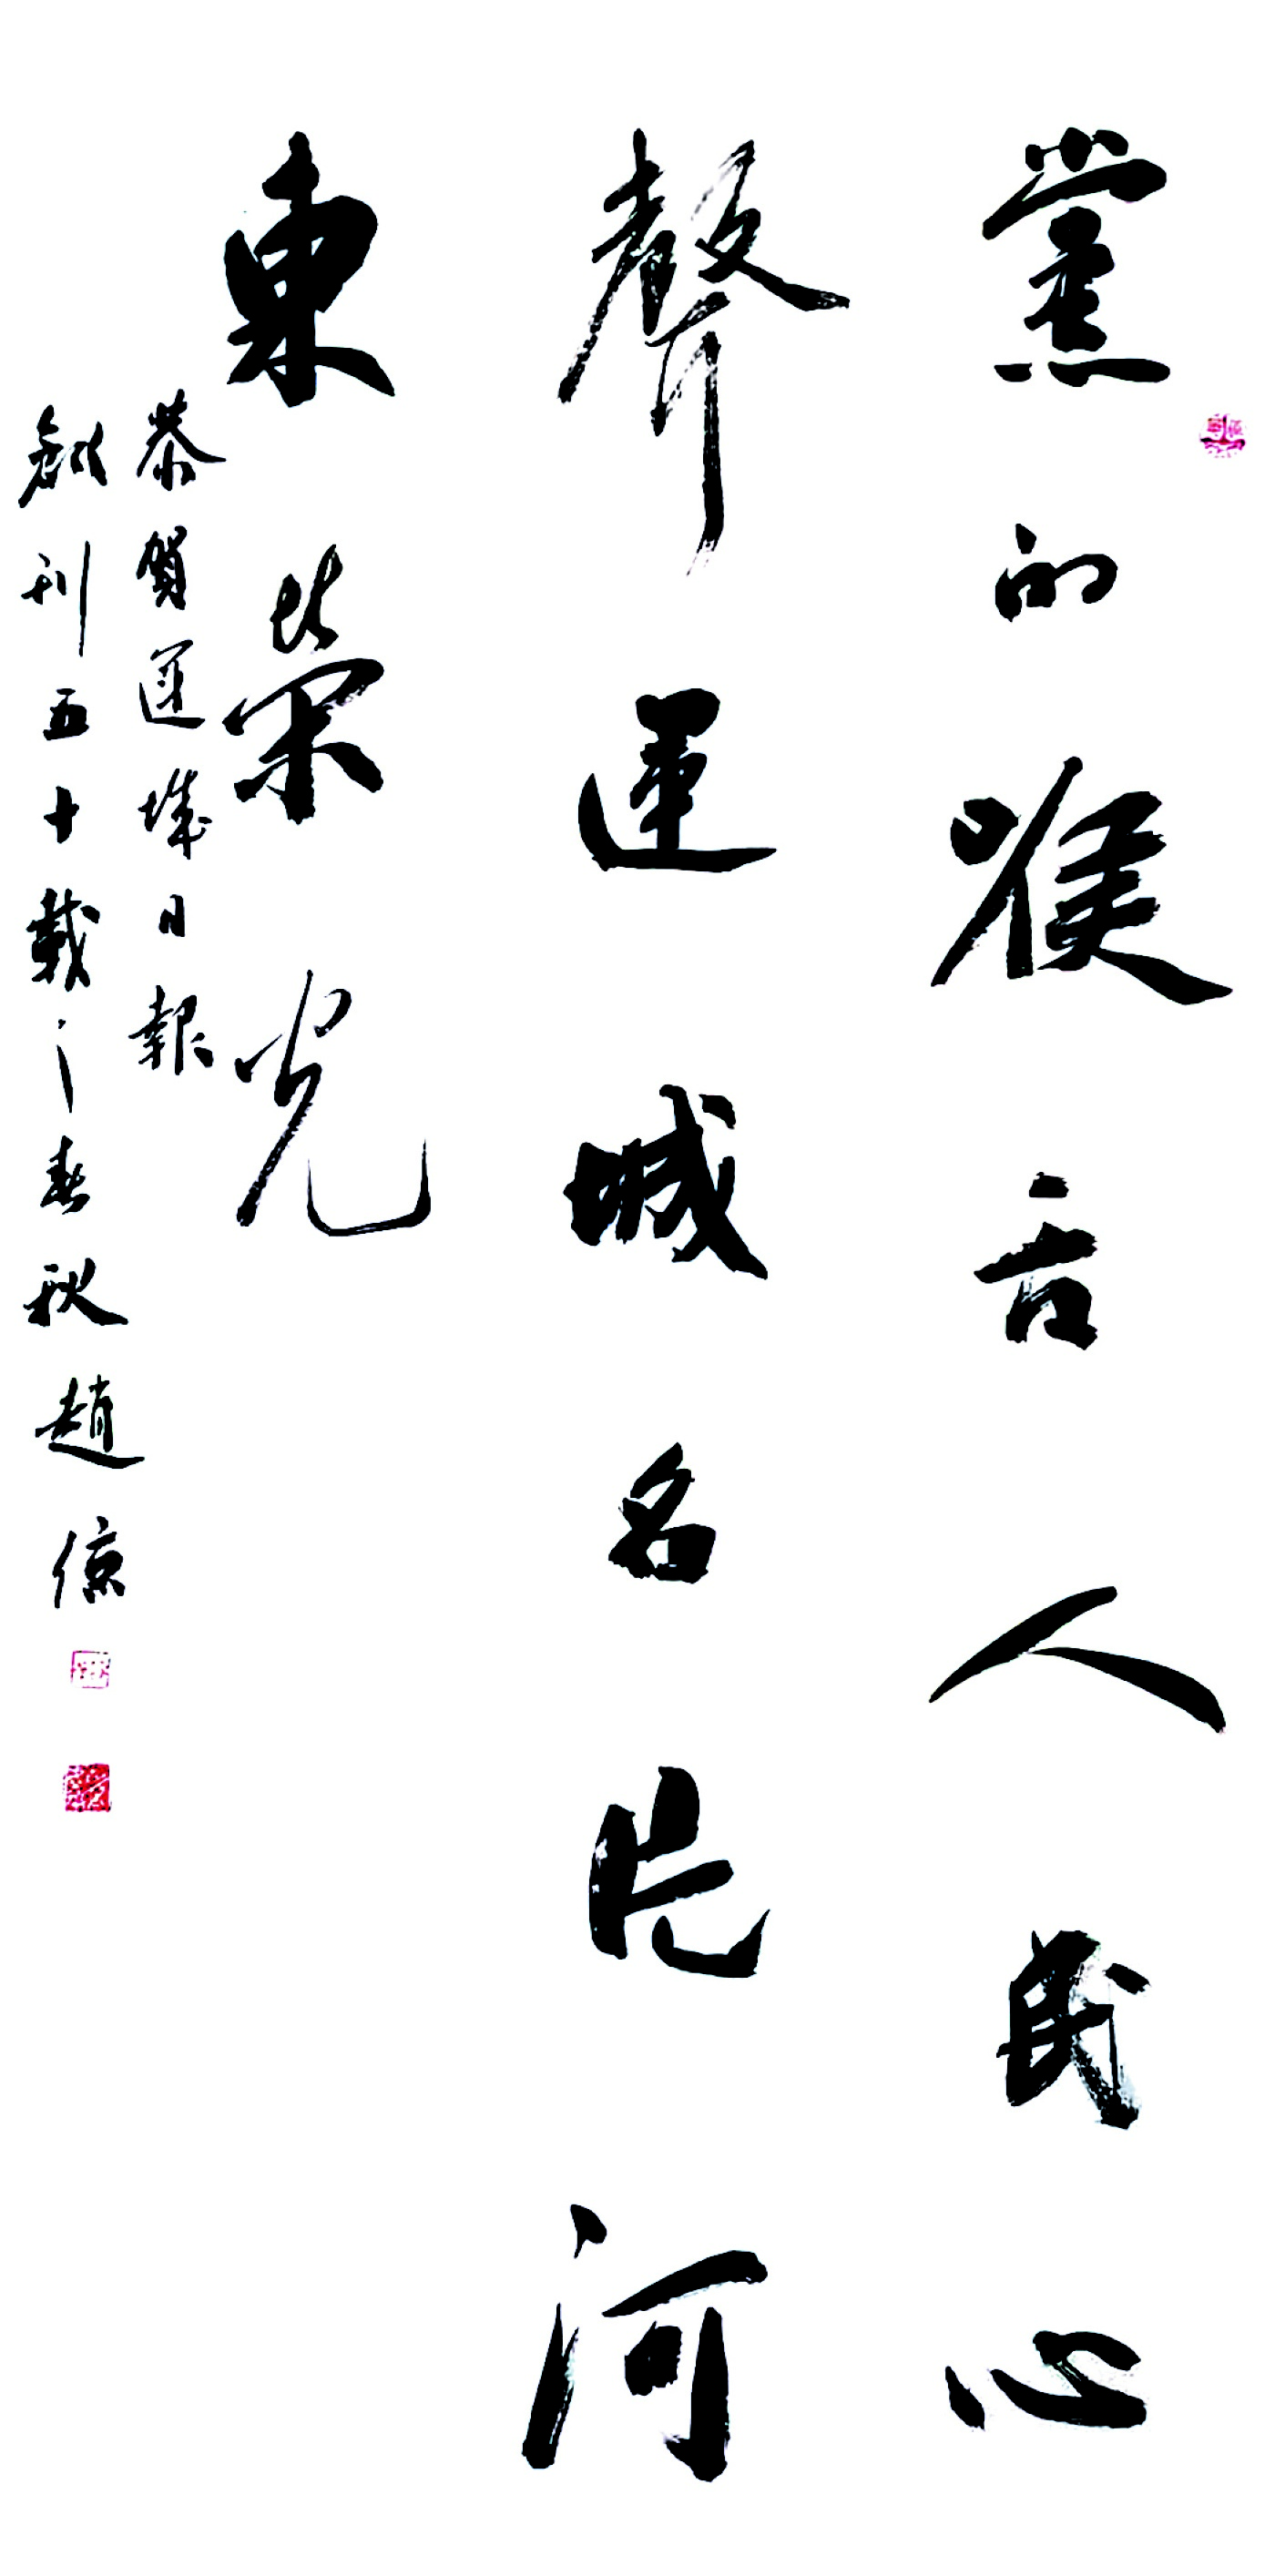 黨的喉舌人民心
聲運城名片河
東榮光
恭賀運城日報
創刊五十載之春秋趙倞